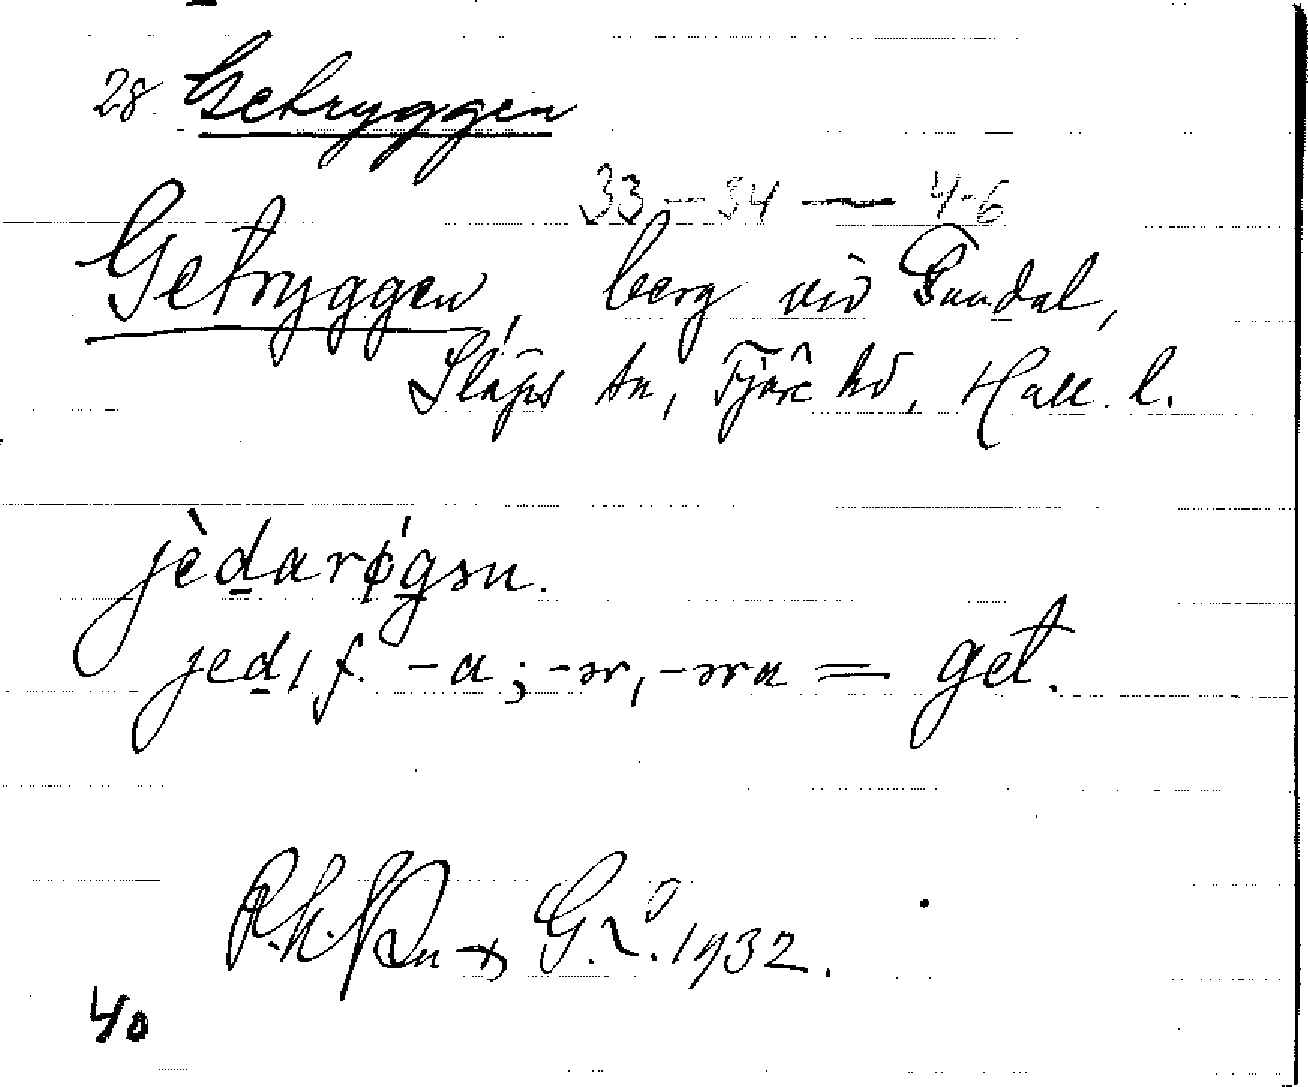 28. Getryggen
33–34 — 4-6
Getryggen, berg vid Gundal,
Släps sn, Fjäre hd, Hall. l.
jèdarǿgən.
jed, f. -a; -ər, -əra = get.
G. 1932.
40